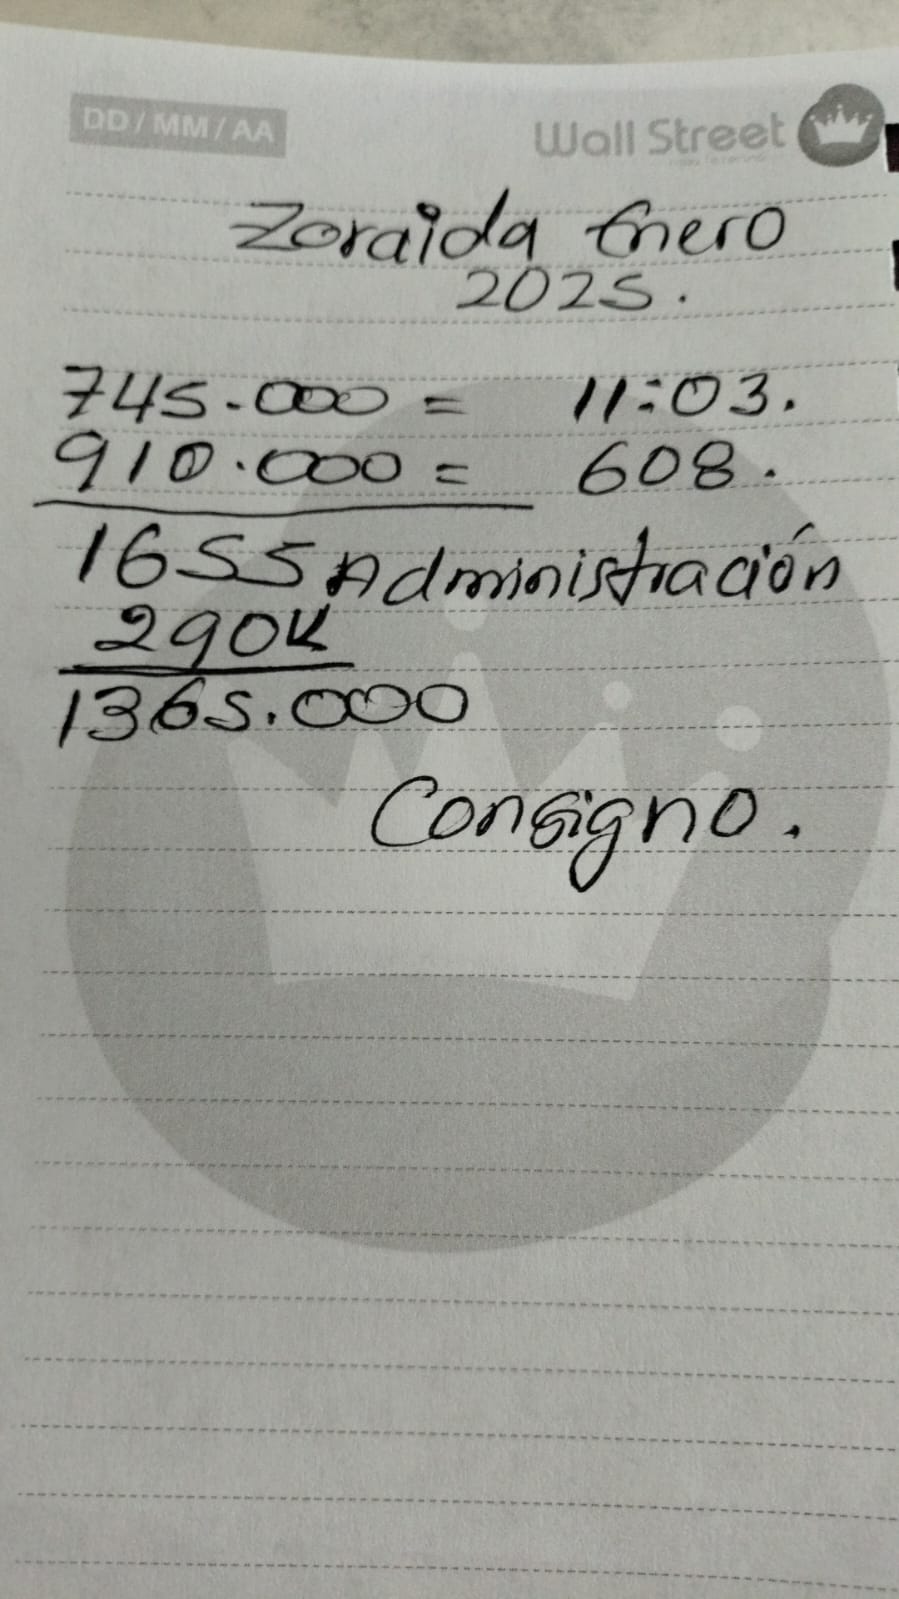 DD/MM/AA
Wall Street
Zoraida Enero
2025.
745.000 = 11:03.
910.000 = 608.
1655 Administración
290K
1365.000
Consigno.